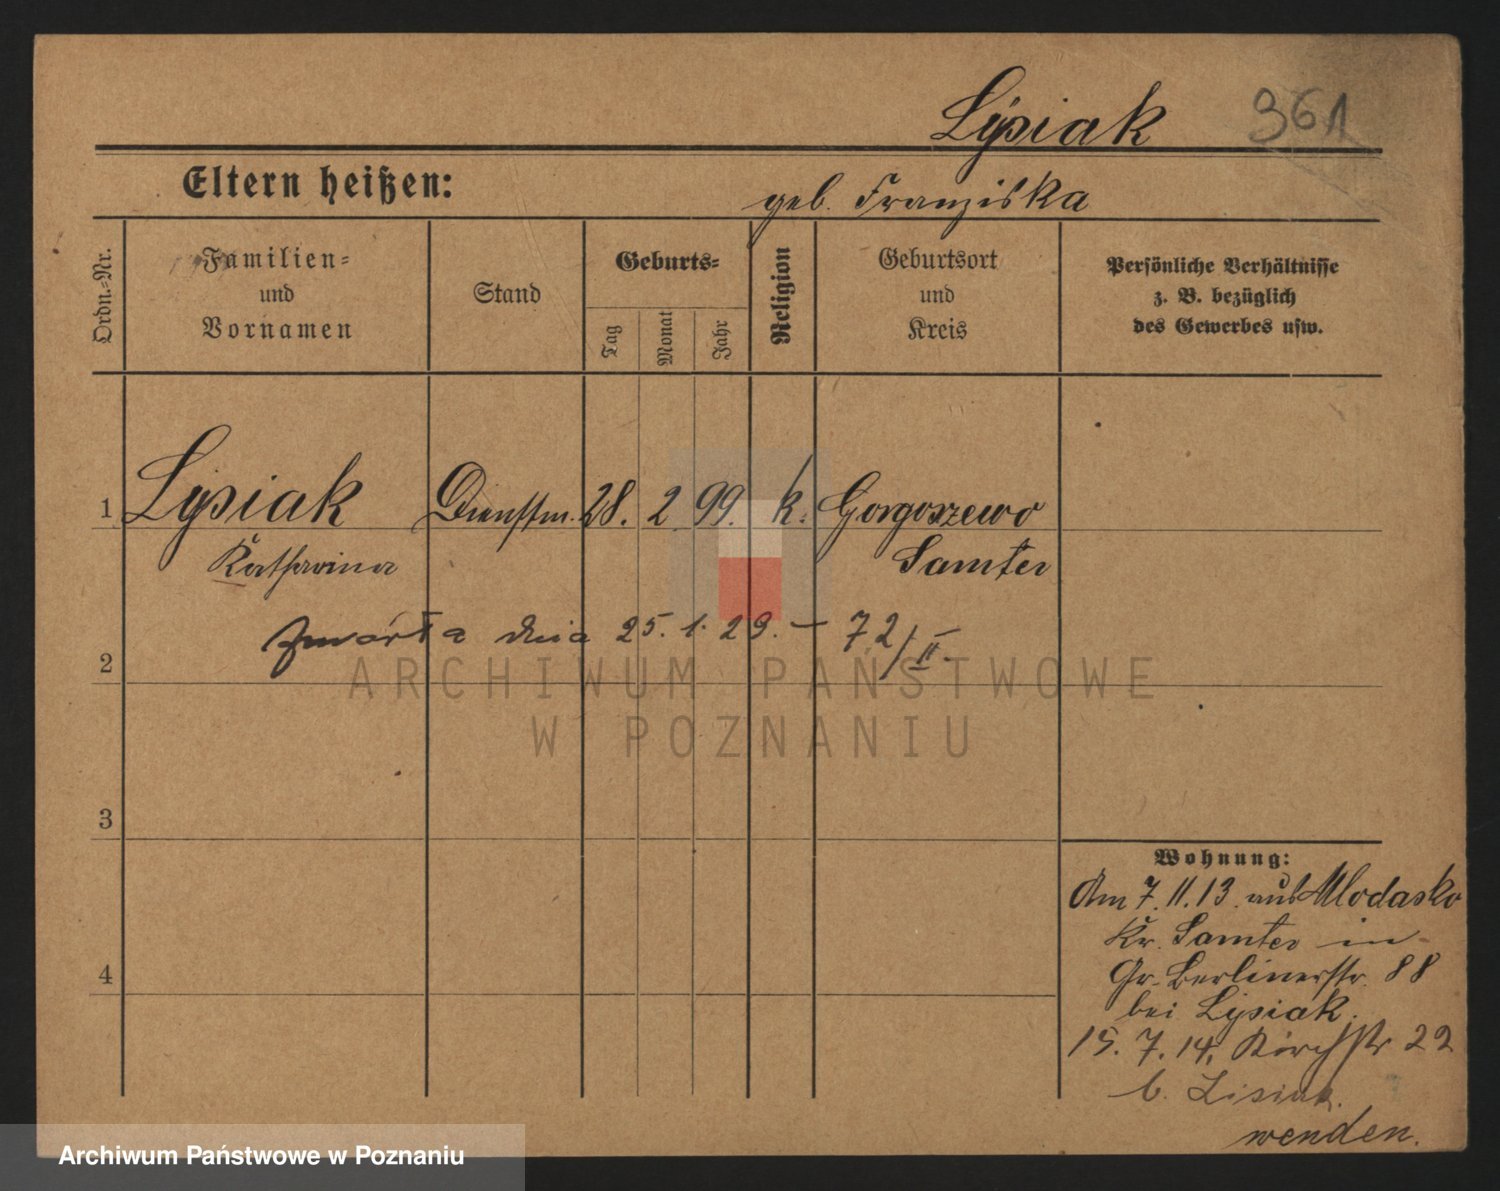 Lysiak 961
Eltern heißen: geb. Franziska
Ordn.-Nr.
Familien- und Vornamen
Stand
Geburts-
Tag Monat Jahr
Religion
Geburtsort und Kreis
Persönliche Verhältnisse z. B. bezüglich des Gewerbes usw.
1 Lysiak Dienstm. 28. 2. 99. k. Gorgoszewo
Katharina Samter
zmarła dnia 25. 1. 29. – 72/II.
2
ARCHIWUM PAŃSTWOWE
W POZNANIU
3
Wohnung:
Am 7.11.13. aus Mlodasko
Kr. Samter in
Gr. Berlinerstr. 88
4
bei Lysiak.
15. 7. 14. Kirchstr 22
b. Lisiak.
wenden.
Archiwum Państwowe w Poznaniu